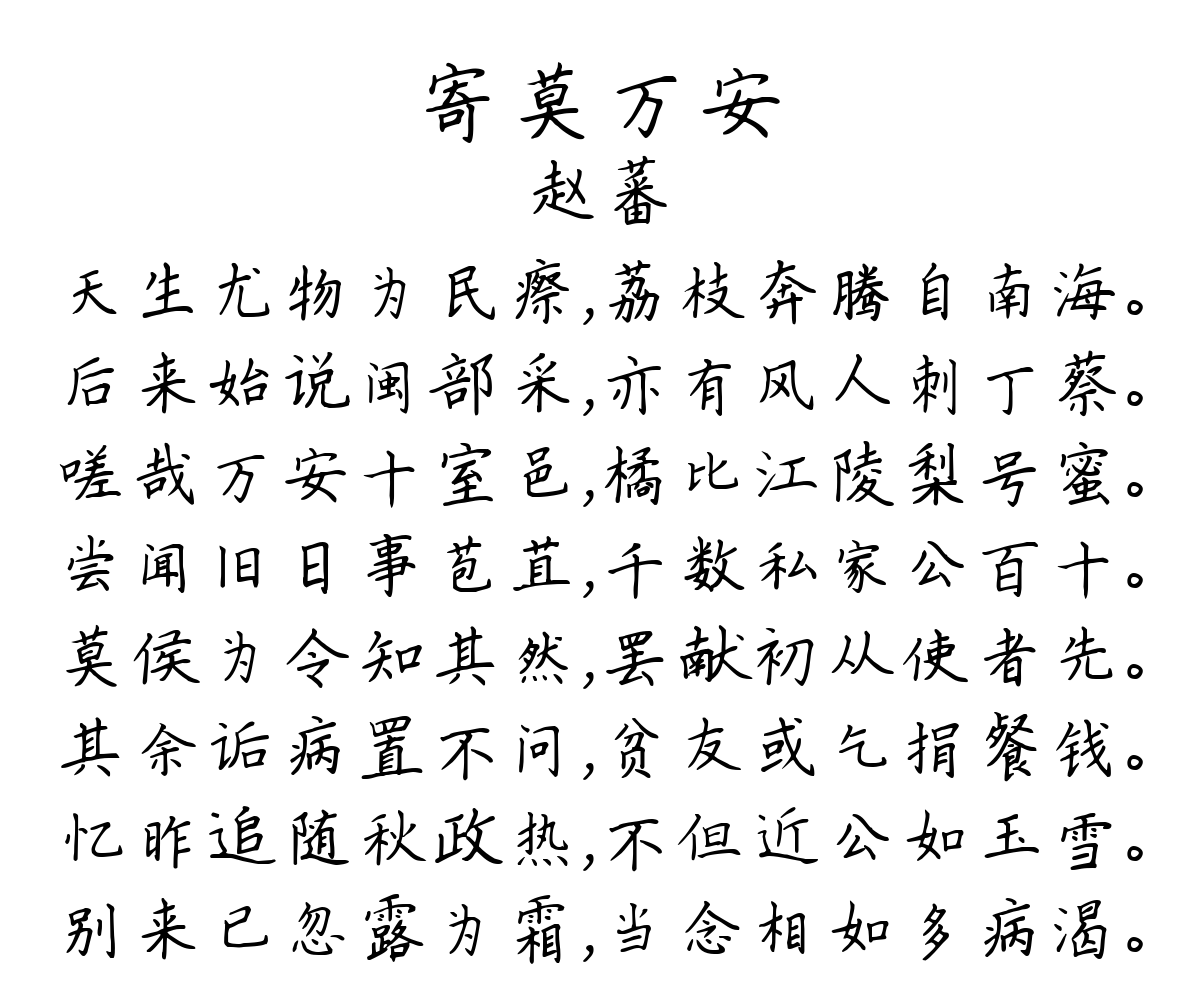 寄莫万安
赵蕃
天生尤物为民瘵,荔枝奔腾自南海。
后来始说闽部采,亦有风人刺丁蔡。
嗟哉万安十室邑,橘比江陵梨号蜜。
尝闻旧日事苞苴,千数私家公百十。
莫侯为令知其然,罢献初从使者先。
其余诟病置不问,贫友或乞捐餐钱。
忆昨追随秋政热,不但近公如玉雪。
别来已忽露为霜,当念相如多病渴。